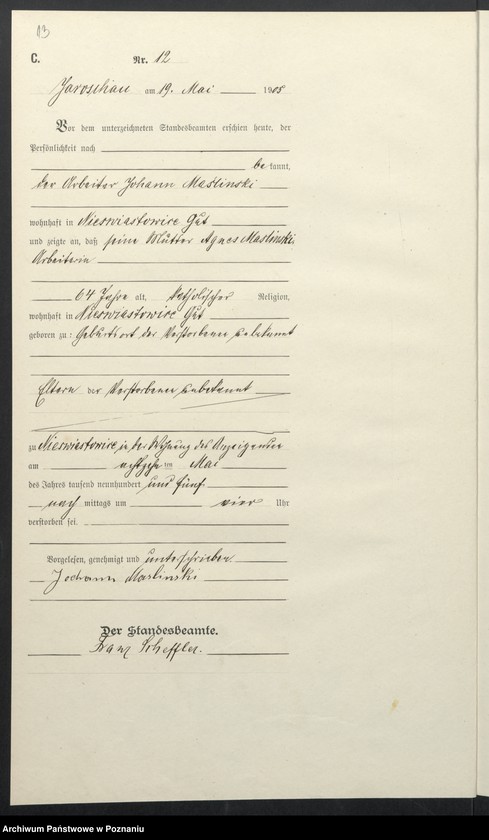 13
C. Nr. 12
Jaroschau am 19. Mai 1905
Vor dem unterzeichneten Standesbeamten erschien heute, der
Persönlichkeit nach
bekannt,
der Arbeiter Johann Maslinski
wohnhaft in Nieswiastowice Gut
und zeigte an, daß seine Mutter Agnes Maslinski,
Arbeiterin
64 Jahre alt, katholischer Religion,
wohnhaft in Nieswiastowice Gut
geboren zu: Geburtsort der Verstorbenen unbekannt
Eltern der Verstorbenen unbekannt
zu Nieswiastowice, in der Wohnung des Anzeigenden
am achtzehnten Mai
des Jahres tausend neunhundert und fünf
nach mittags um vier Uhr
verstorben sei.
Vorgelesen, genehmigt und unterschrieben
Johann Maslinski
Der Standesbeamte.
Franz Scheffler.
Archiwum Państwowe w Poznaniu